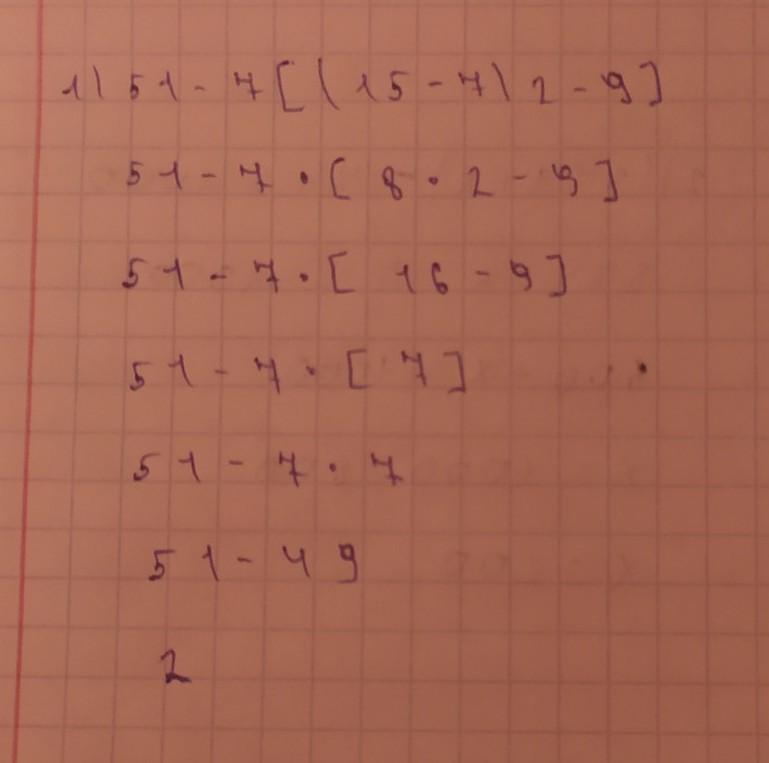 1) 51 - 7 [(15 - 7) 2 - 9]
51 - 7 · [ 8 · 2 - 9 ]
51 - 7 · [ 16 - 9 ]
51 - 7 · [ 7 ]
51 - 7 · 7
51 - 49
2